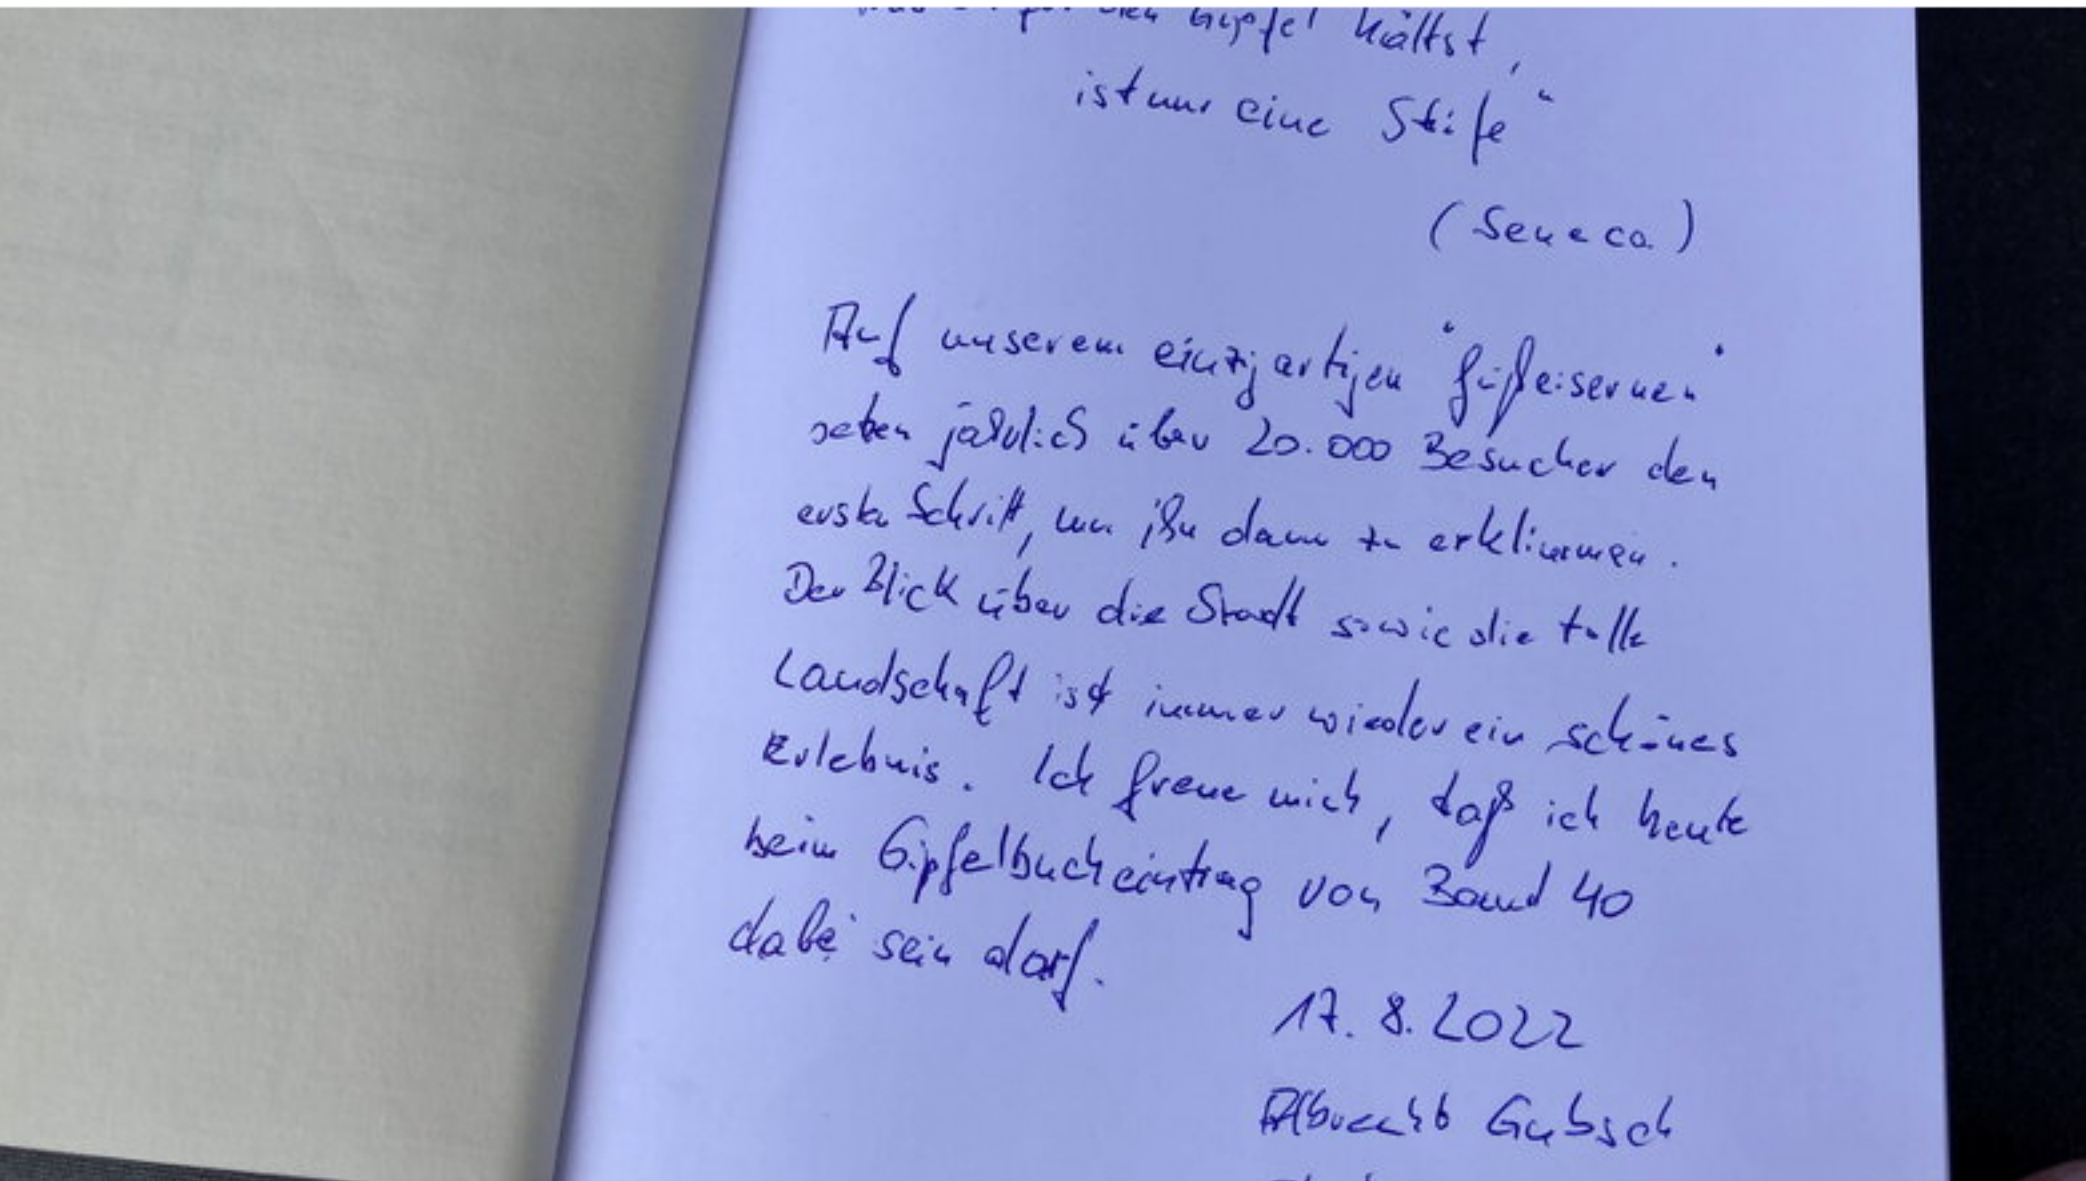 den Gipfel hältst,
ist nur eine Stufe"
(Seneca)
Auf unserem einzigartigen "gußeisernen"
setzen jährlich über 20.000 Besucher den
ersten Schritt, um ihn dann zu erklimmen.
Der Blick über die Stadt sowie die tolle
Landschaft ist immer wieder ein schönes
Erlebnis. Ich freue mich, daß ich heute
beim Gipfelbucheintrag von Band 40
dabei sein darf.
17.8.2022
Albrecht Gubsch